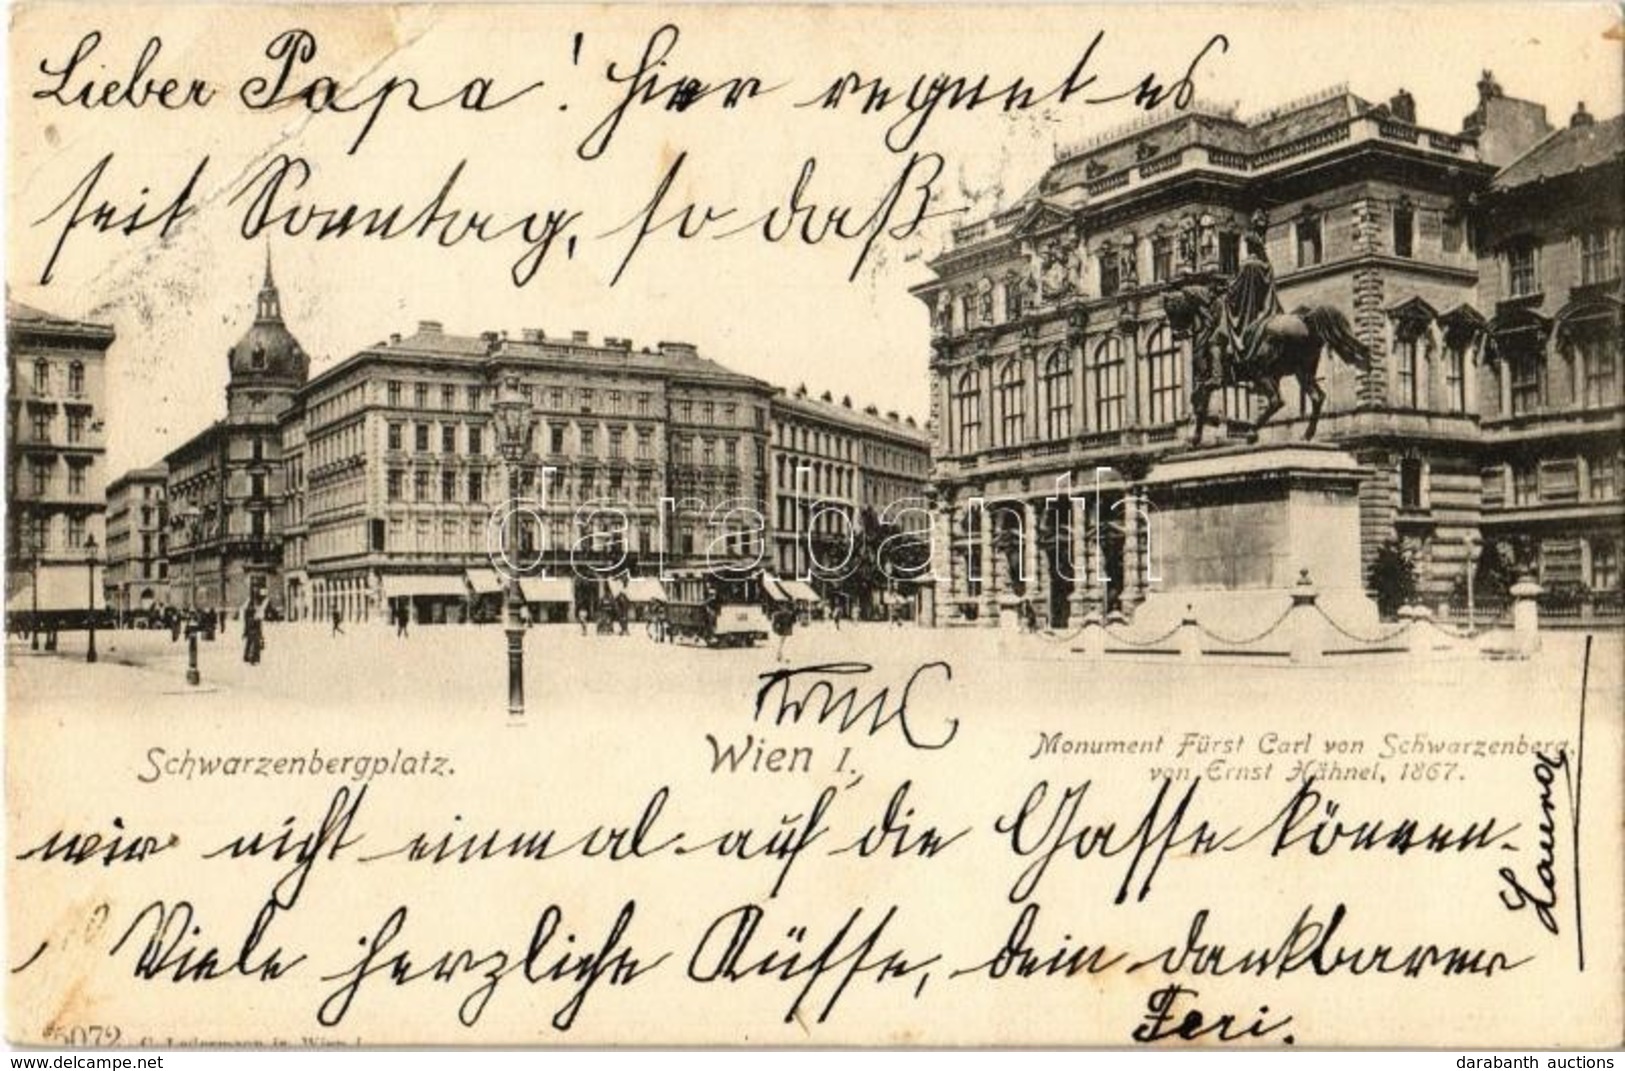 Lieber Papa! Hier regnet es
seit Sonntag, so daß
darabanth
Schwarzenbergplatz.
Wien I.
Monument Fürst Carl von Schwarzenberg,
von Ernst Hähnel, 1867.
wir nicht einmal auf die Gasse können.
Viele herzliche Küsse, dein dankbarer
Feri.
5072
C. Ledermann jr. Wien I.
darabanth auctions